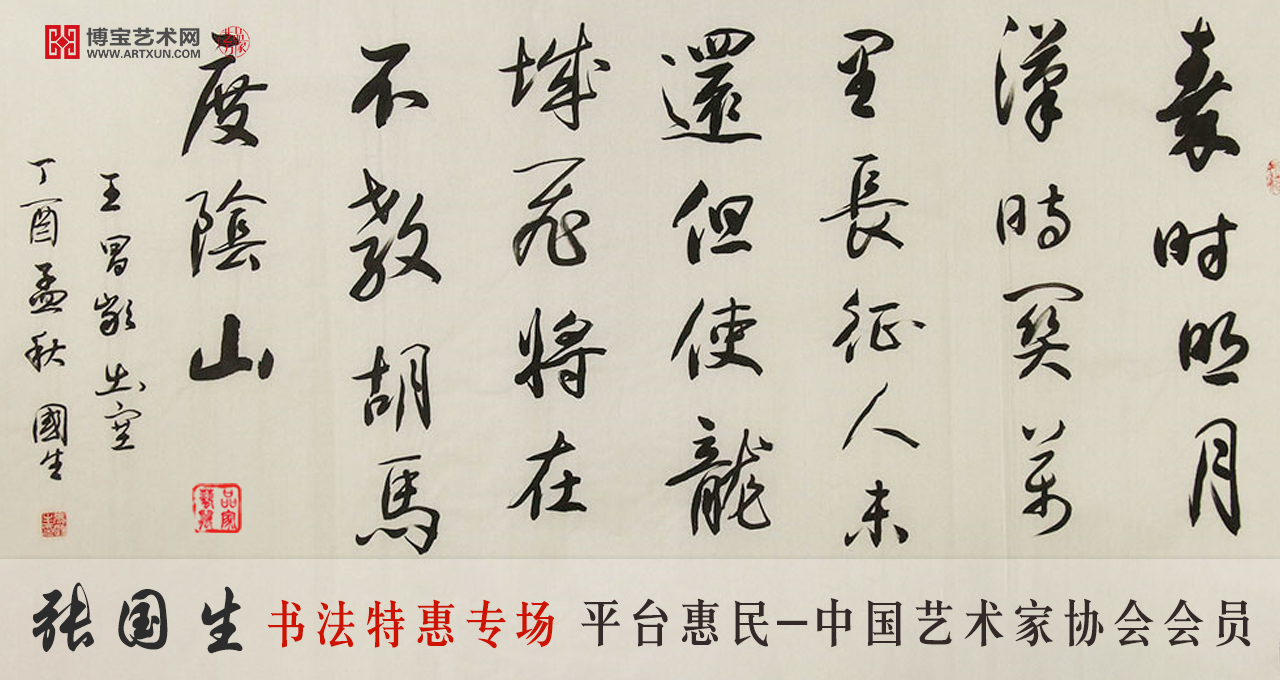 博宝艺术网
WWW.ARTXUN.COM
秦时明月
漢時関萬
里長征人未
還但使龍
城飛將在
不教胡馬
度陰山
王昌齡出塞
丁酉孟秋 國生
张国生 书法特惠专场 平台惠民—中国艺术家协会会员